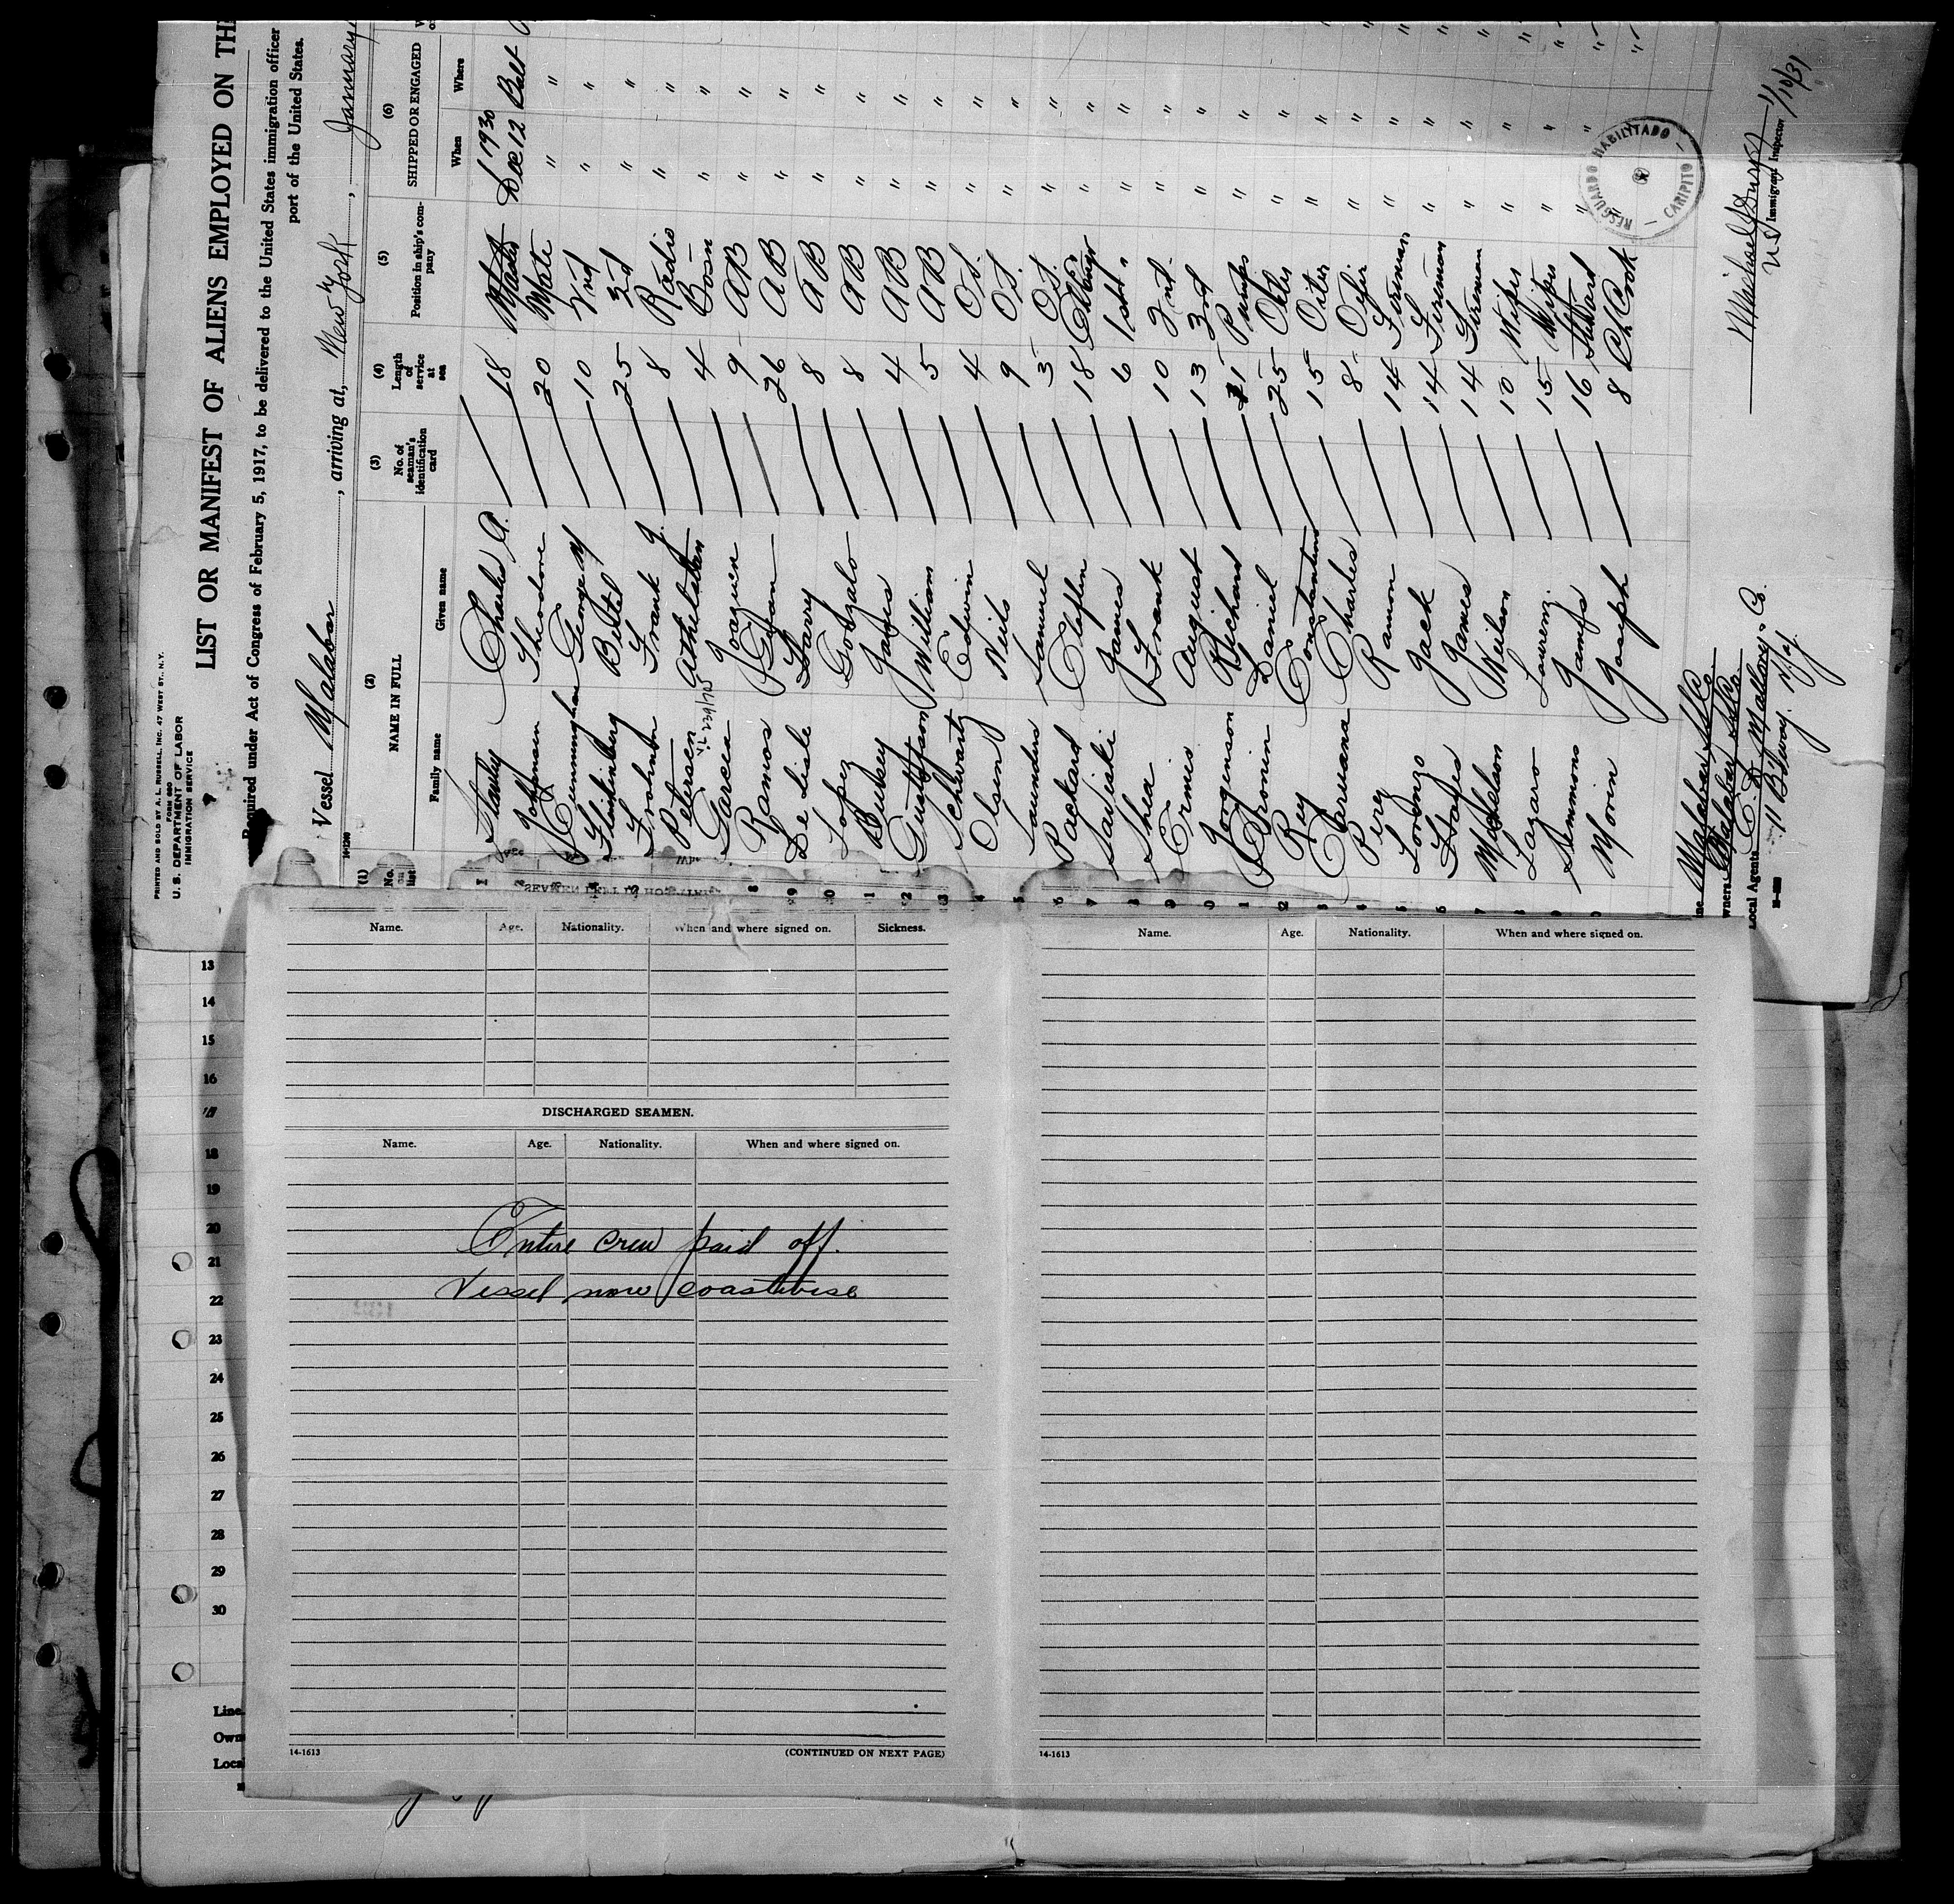 PRINTED AND SOLD BY A. L. RUSSELL, INC. 47 WEST ST., N.Y.
FORM 680
U. S. DEPARTMENT OF LABOR
IMMIGRATION SERVICE
LIST OR MANIFEST OF ALIENS EMPLOYED ON TH
Required under Act of Congress of February 5, 1917, to be delivered to the United States immigration officer
port of the United States.
Vessel Malabar, arriving at, New York, January
(1) (2) (3) (4) (5) (6)
No. on list NAME IN FULL No. of seaman's identification card Length of service at sea Position in ship's company SHIPPED OR ENGAGED
Family name Given name When Where
1 Stanley Charles A. 18 Master Dec 12 1930 Balt
Johansen Theodore 20 Mate " "
Cunningham George M 10 2nd " "
Flinkinberg 25 3rd " "
Frohman Frank J. 8 Radio " "
Petersen Athelstan 4 Bosn " "
Garcia Joaquin 9 AB " "
8 Ramos 26 AB " "
9 De Lisle Harry 8 AB " "
Lopez Gonzalo 8 AB " "
1 Buskey James 4 AB " "
2 Gustafson William 5 AB " "
3 Schwartz Edwin 4 OS. " "
4 Olsen Neils 9 OS. " "
5 Saunders Samuel 3 OS. " "
6 Packard Claflin 18 " "
7 Sadiski James 6 1sst. " "
8 Shea Frank 10 2nd. " "
9 Ermis August 13 3rd " "
0 Jorgenson Richard " "
1 Cronin Daniel 25 Oiler " "
2 Rey Constantino 15 Oiler " "
3 Caruana Charles 8 " "
4 Perez Ramon 14 Fireman " "
5 Lorenzo Jack 14 Fireman " "
6 Hayes James 14 Fireman " "
7 Wilson 10 Wiper " "
8 Lazaro 15 Wiper " "
9 Simmons James 16 Steward " "
0 Morin Joseph 8 Ch. Cook " "
Malabar SS Co.
wners Malabar SS Co.
ocal Agents C. D. Mallory & Co.
11 B'way. N.Y.
RESGUARDO HABILITADO
— CARIPITO —
US Immigrant Inspector
1/10/31
Name. Age. Nationality. When and where signed on. Sickness.
DISCHARGED SEAMEN.
Name. Age. Nationality. When and where signed on.
Entire crew paid off.
Vessel now coastwise
14-1613 (CONTINUED ON NEXT PAGE)
Name. Age. Nationality. When and where signed on.
14-1613
13
14
15
16
18
19
20
21
22
23
24
25
26
27
28
29
30
Line
Own
Loca